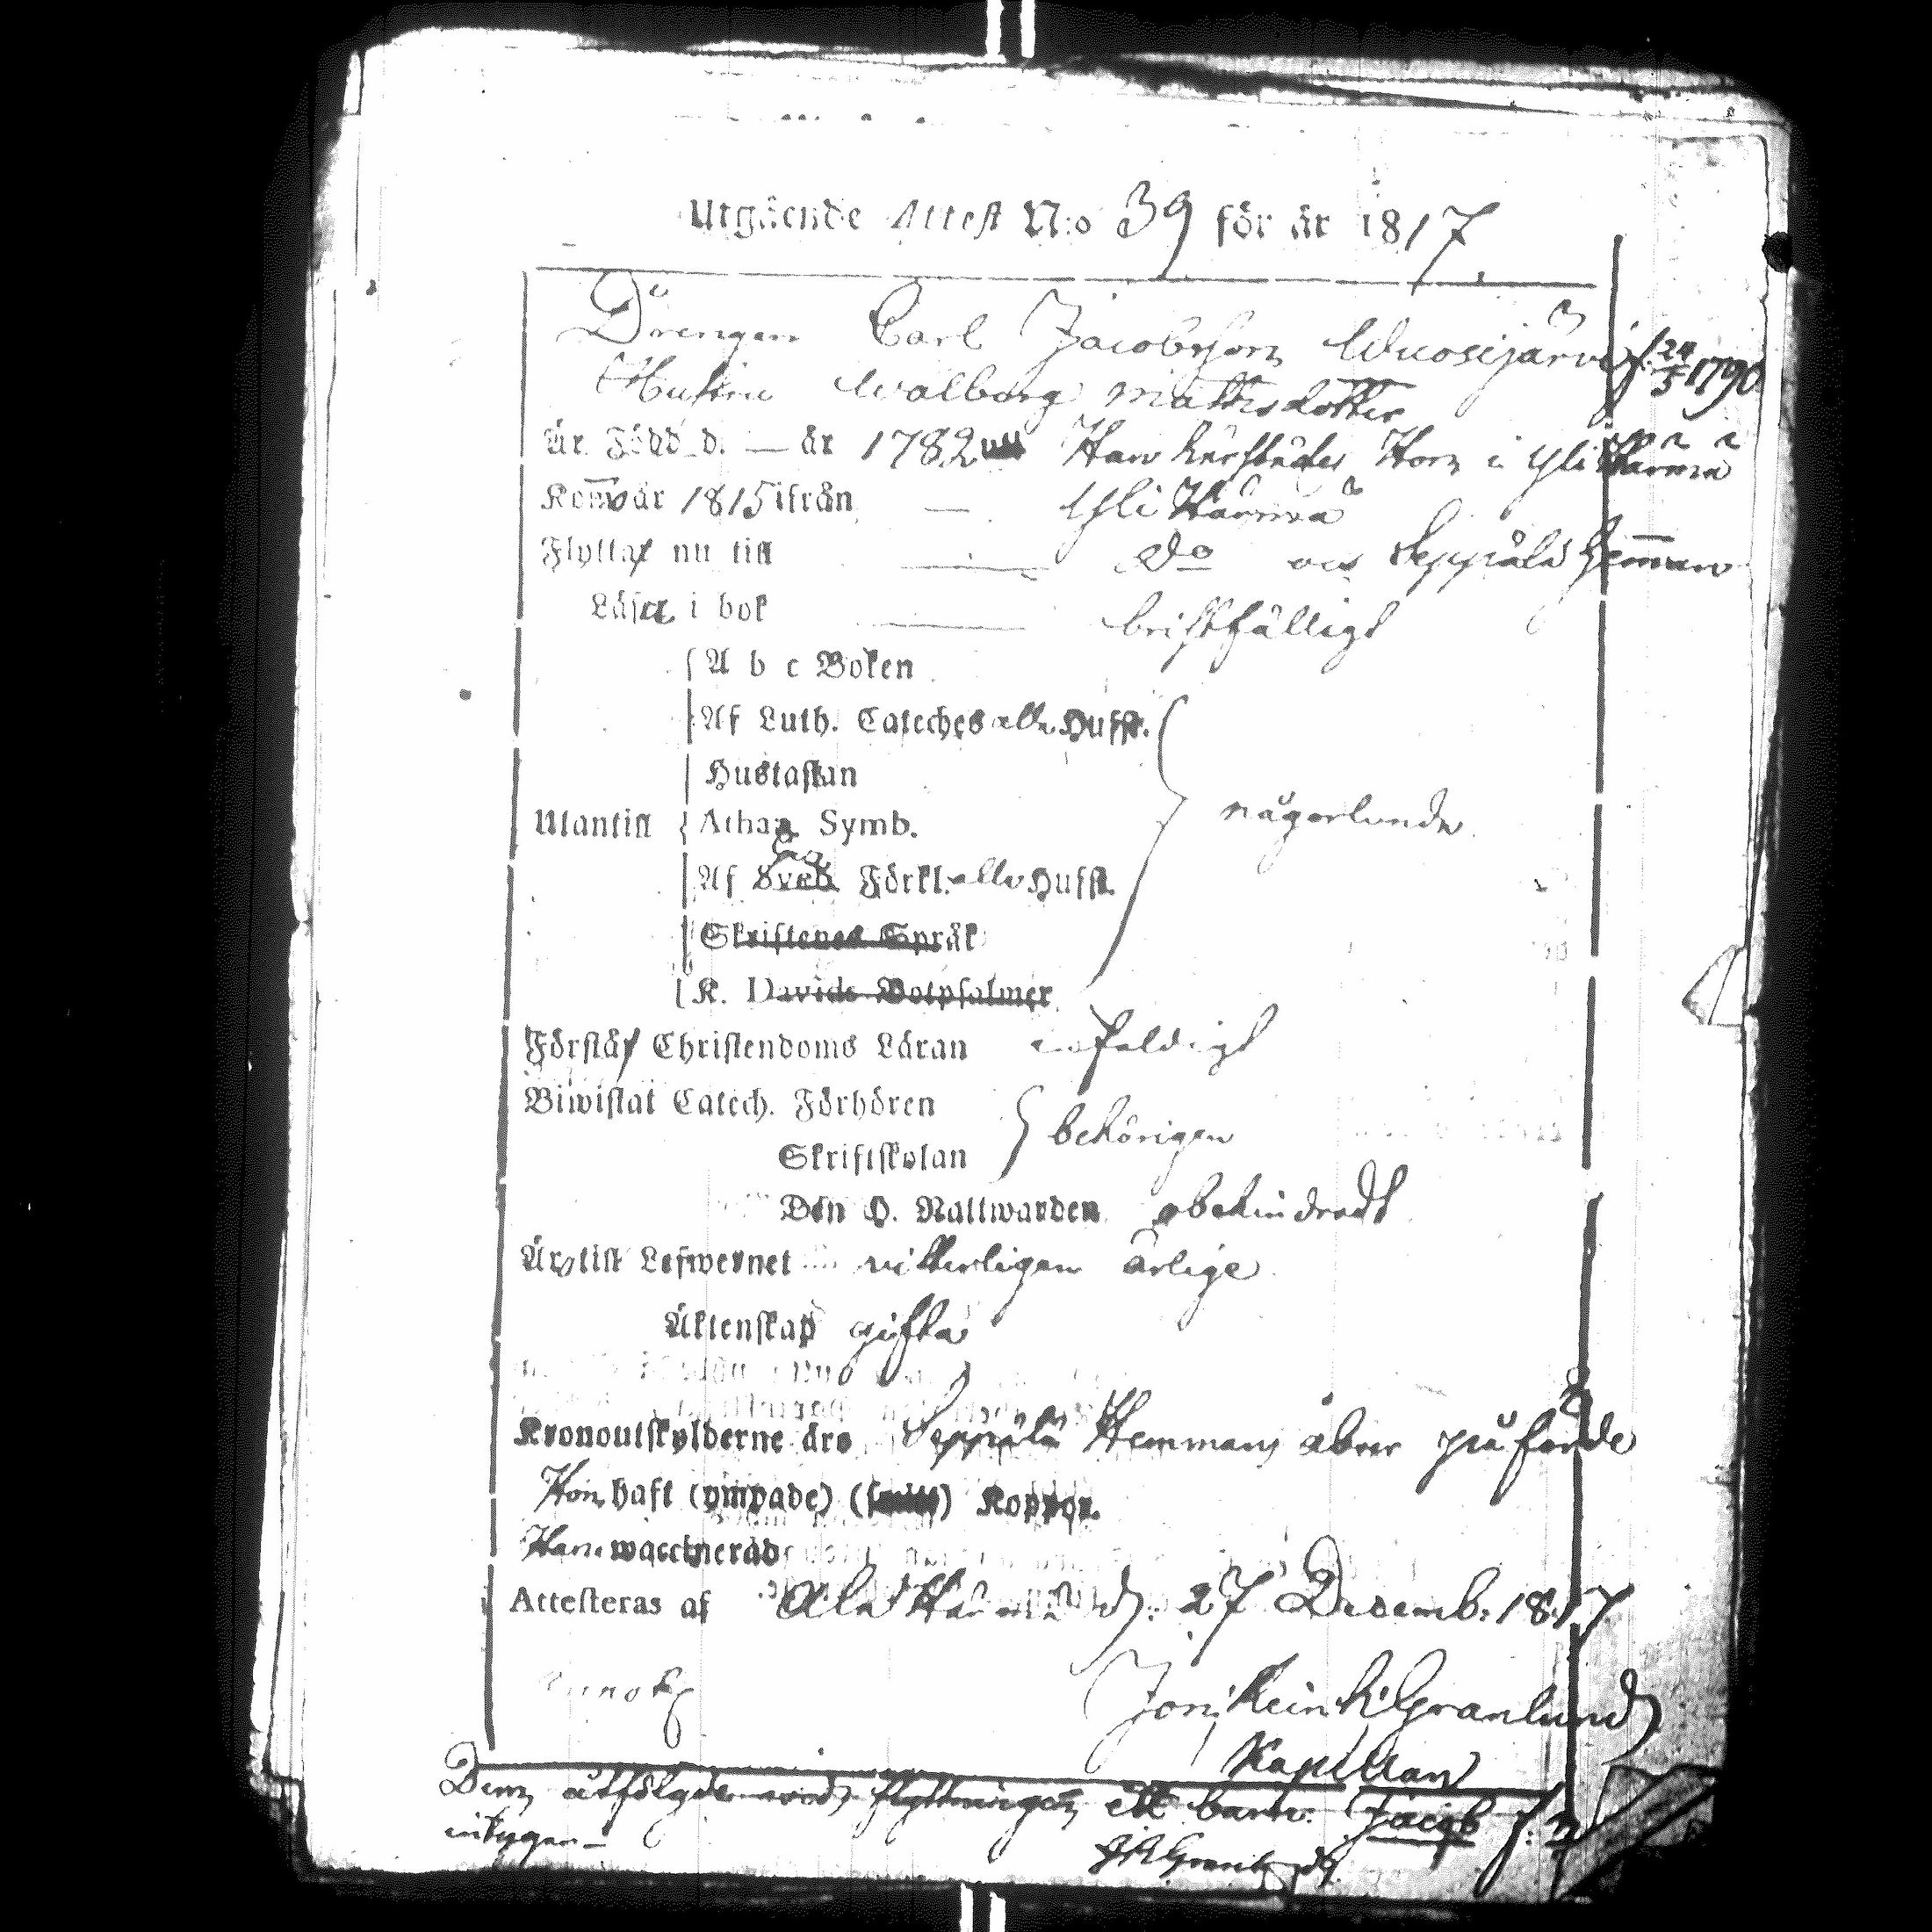 Utgående Attest N:o 39 för år 1817
Drengen Carl Jacobsson Wuosijärvi f. 24/5 1790
Hustru Walborg Mattsdotter
Är Född d. — år 1782 Han härstädes, Hon i Yli Härmä
Kom̄o år 1815 ifrån — Yli Härmä
Flytta nu till — do Seppälä Hem̄an
Läsa i bok — bristfälligt
A b c Boken
Af Luth. Cateches alla Hufst.
Hustaflan
Utantill Athan. Symb. någorlunda
Af Sveb. Förkl. alla Hufst.
Skriftenes Språk
K. Davids Botpsalmer
Förstå Christendoms Läran enfaldigt
Biwistat Catech. Förhören
behörigen
Skriftskolan
Den H. Nattwarden obehindradt
Äro till Lefwernet witterligen ärlige
Äktenskap gifta
Kronoutskylderne äro Seppälä Hemmans åboer påförde
Hon haft (ympade) () Koppor.
Han waccinerad
Attesteras af Ala Härmä d. 27 Decemb: 1817
Jon: Heinr: Granlund
Kapellan
Dem åtfölgde wid flyttningen ett barn: Jacob f.
J H Granlund